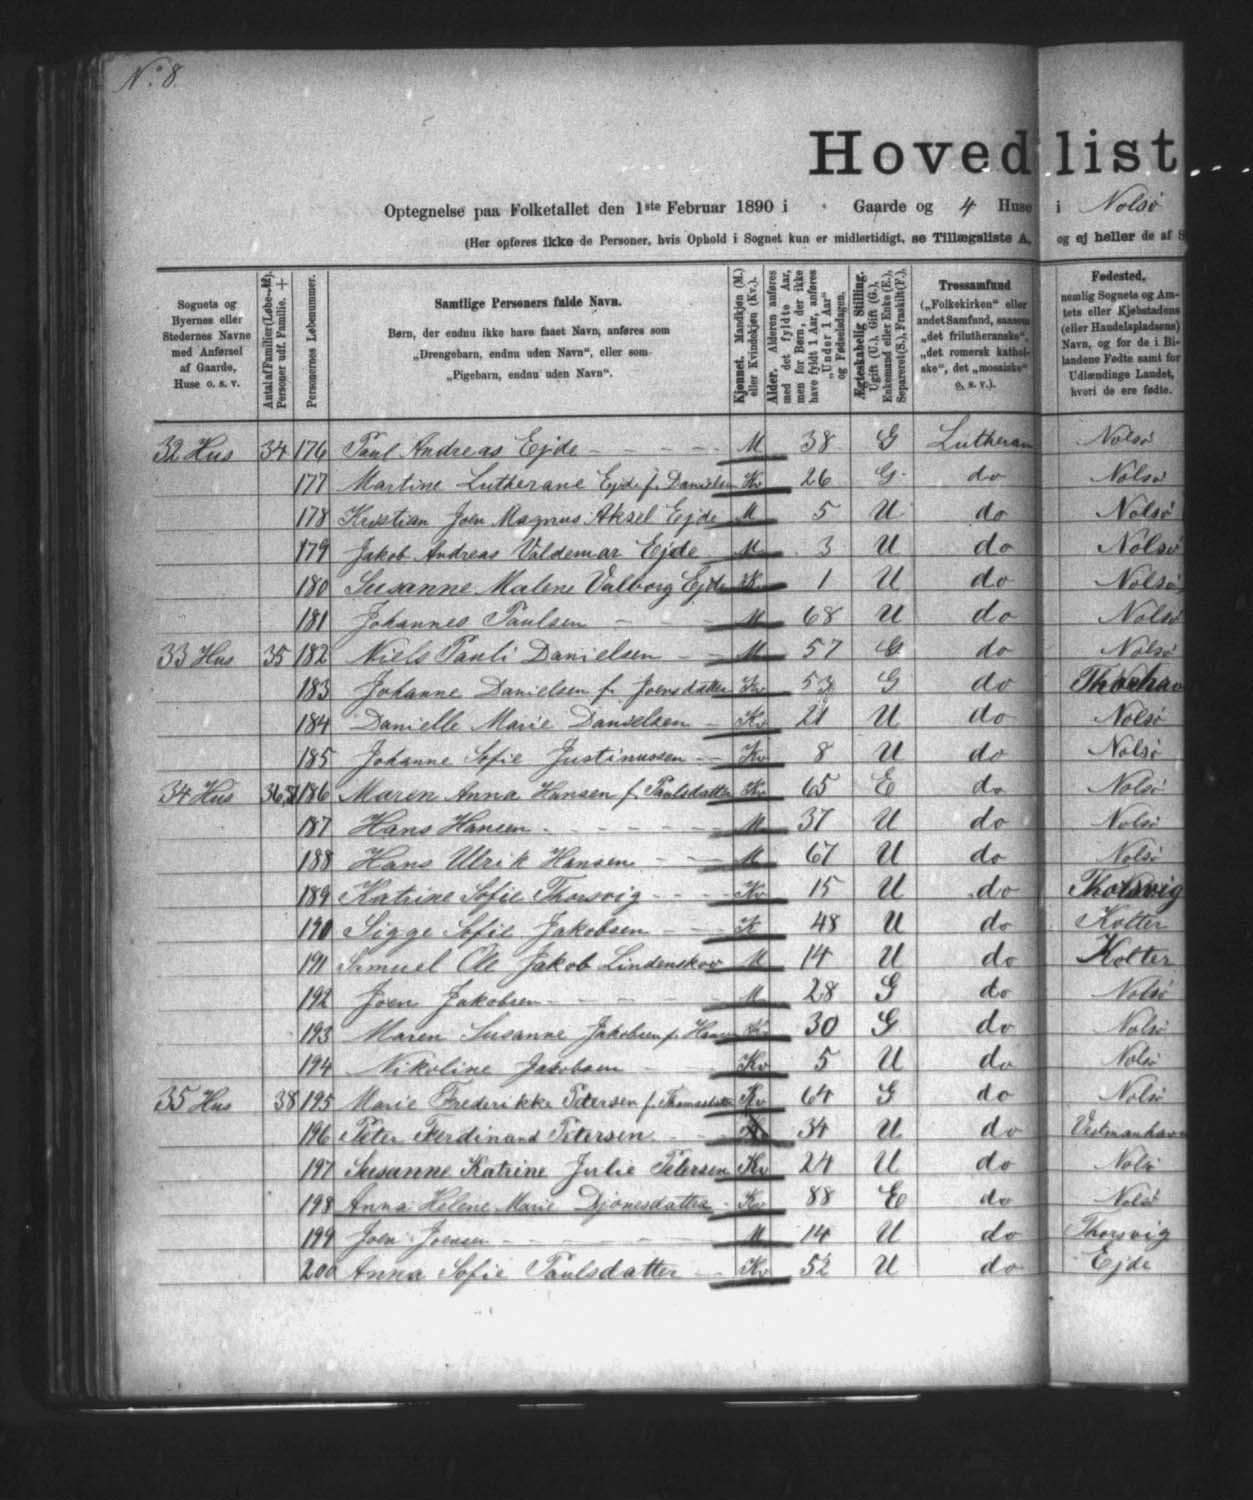 No. 8.
Hovedlist
Optegnelse paa Folketallet den 1ste Februar 1890 i Gaarde og 4 Huse i Nolsö
(Her opføres ikke de Personer, hvis Ophold i Sognet kun er midlertidigt, se Tillægsliste A, og ej heller de af S
Sognets og Byernes eller Stedernes Navne med Anførsel af Gaarde, Huse o. s. v.
Antal af Familier (Løbe-№). Personer udf. Familie. +
Personernes Løbenummer.
Samtlige Personers fulde Navn.
Børn, der endnu ikke have faaet Navn, anføres som „Drengebarn, endnu uden Navn“, eller som „Pigebarn, endnu uden Navn“.
Kjønnet. Mandkjøn (M.) eller Kvindekjøn (Kv.).
Alder. Alderen anføres med det fyldte Aar, men for Børn, der ikke have fyldt 1 Aar, anføres „Under 1 Aar“ og Fødselsdagen.
Ægteskabelig Stilling. Ugift (U.), Gift (G.), Enkemand eller Enke (E.), Separeret (S.), Fraskilt (F.).
Trossamfund („Folkekirken“ eller andet Samfund, saasom „det frilutheranske“, „det romersk katholske“, det „mosaiske“ o. s. v.).
Fødested, nemlig Sognets og Amtets eller Kjøbstadens (eller Handelspladsens) Navn, og for de i Bilandene Fødte samt for Udlændinge Landet, hvori de ere fødte.
32 Hus 34 176 Paul Andreas Ejde M 38 G Lutheran Nolsö
177 Martine Lutherane Ejde f. Danielsen Kv 26 G do Nolsö
178 Kristian Joen Magnus Aksel Ejde M 5 U do Nolsö
179 Jakob Andreas Valdemar Ejde M 3 U do Nolsö
180 Susanne Malene Valborg Ejde Kv 1 U do Nolsö
181 Johannes Paulsen M 68 U do Nolsö
33 Hus 35 182 Niels Pauli Danielsen M 57 G do Nolsö
183 Johanne Danielsen f. Joensdatter Kv 53 G do Thorhav
184 Danielle Marie Danielsen Kv 21 U do Nolsö
185 Johanne Sofie Justinussen Kv 8 U do Nolsö
34 Hus 36 186 Maren Anna Hansen f. Paulsdatter Kv 65 E do Nolsö
187 Hans Hansen M 37 U do Nolsö
188 Hans Ulrik Hansen M 67 U do Nolsö
189 Katrine Sofie Thorsvig Kv 15 U do Thorsvig
190 Sigge Sofie Jakobsen K 48 U do Kolter
191 Samuel Ole Jakob Lindenskov M 14 U do Kolter
192 Joen Jakobsen M 28 G do Nolsö
193 Maren Susanne Jakobsen f. Hansen Kv 30 G do Nolsö
194 Nikoline Jakobsen Kv 5 U do Nolsö
35 Hus 38 195 Marie Frederikke Petersen f. Kv 64 G do Nolsö
196 Peter Ferdinand Petersen 34 U do Vestmanhavn
197 Susanne Katrine Julie Petersen Kv 24 U do Nolsö
198 Anna Helene Marie Djonesdatter Kv 88 E do Nolsö
199 Joen Joensen M 14 U do Thorsvig
200 Anna Sofie Paulsdatter Kv 52 U do Ejde